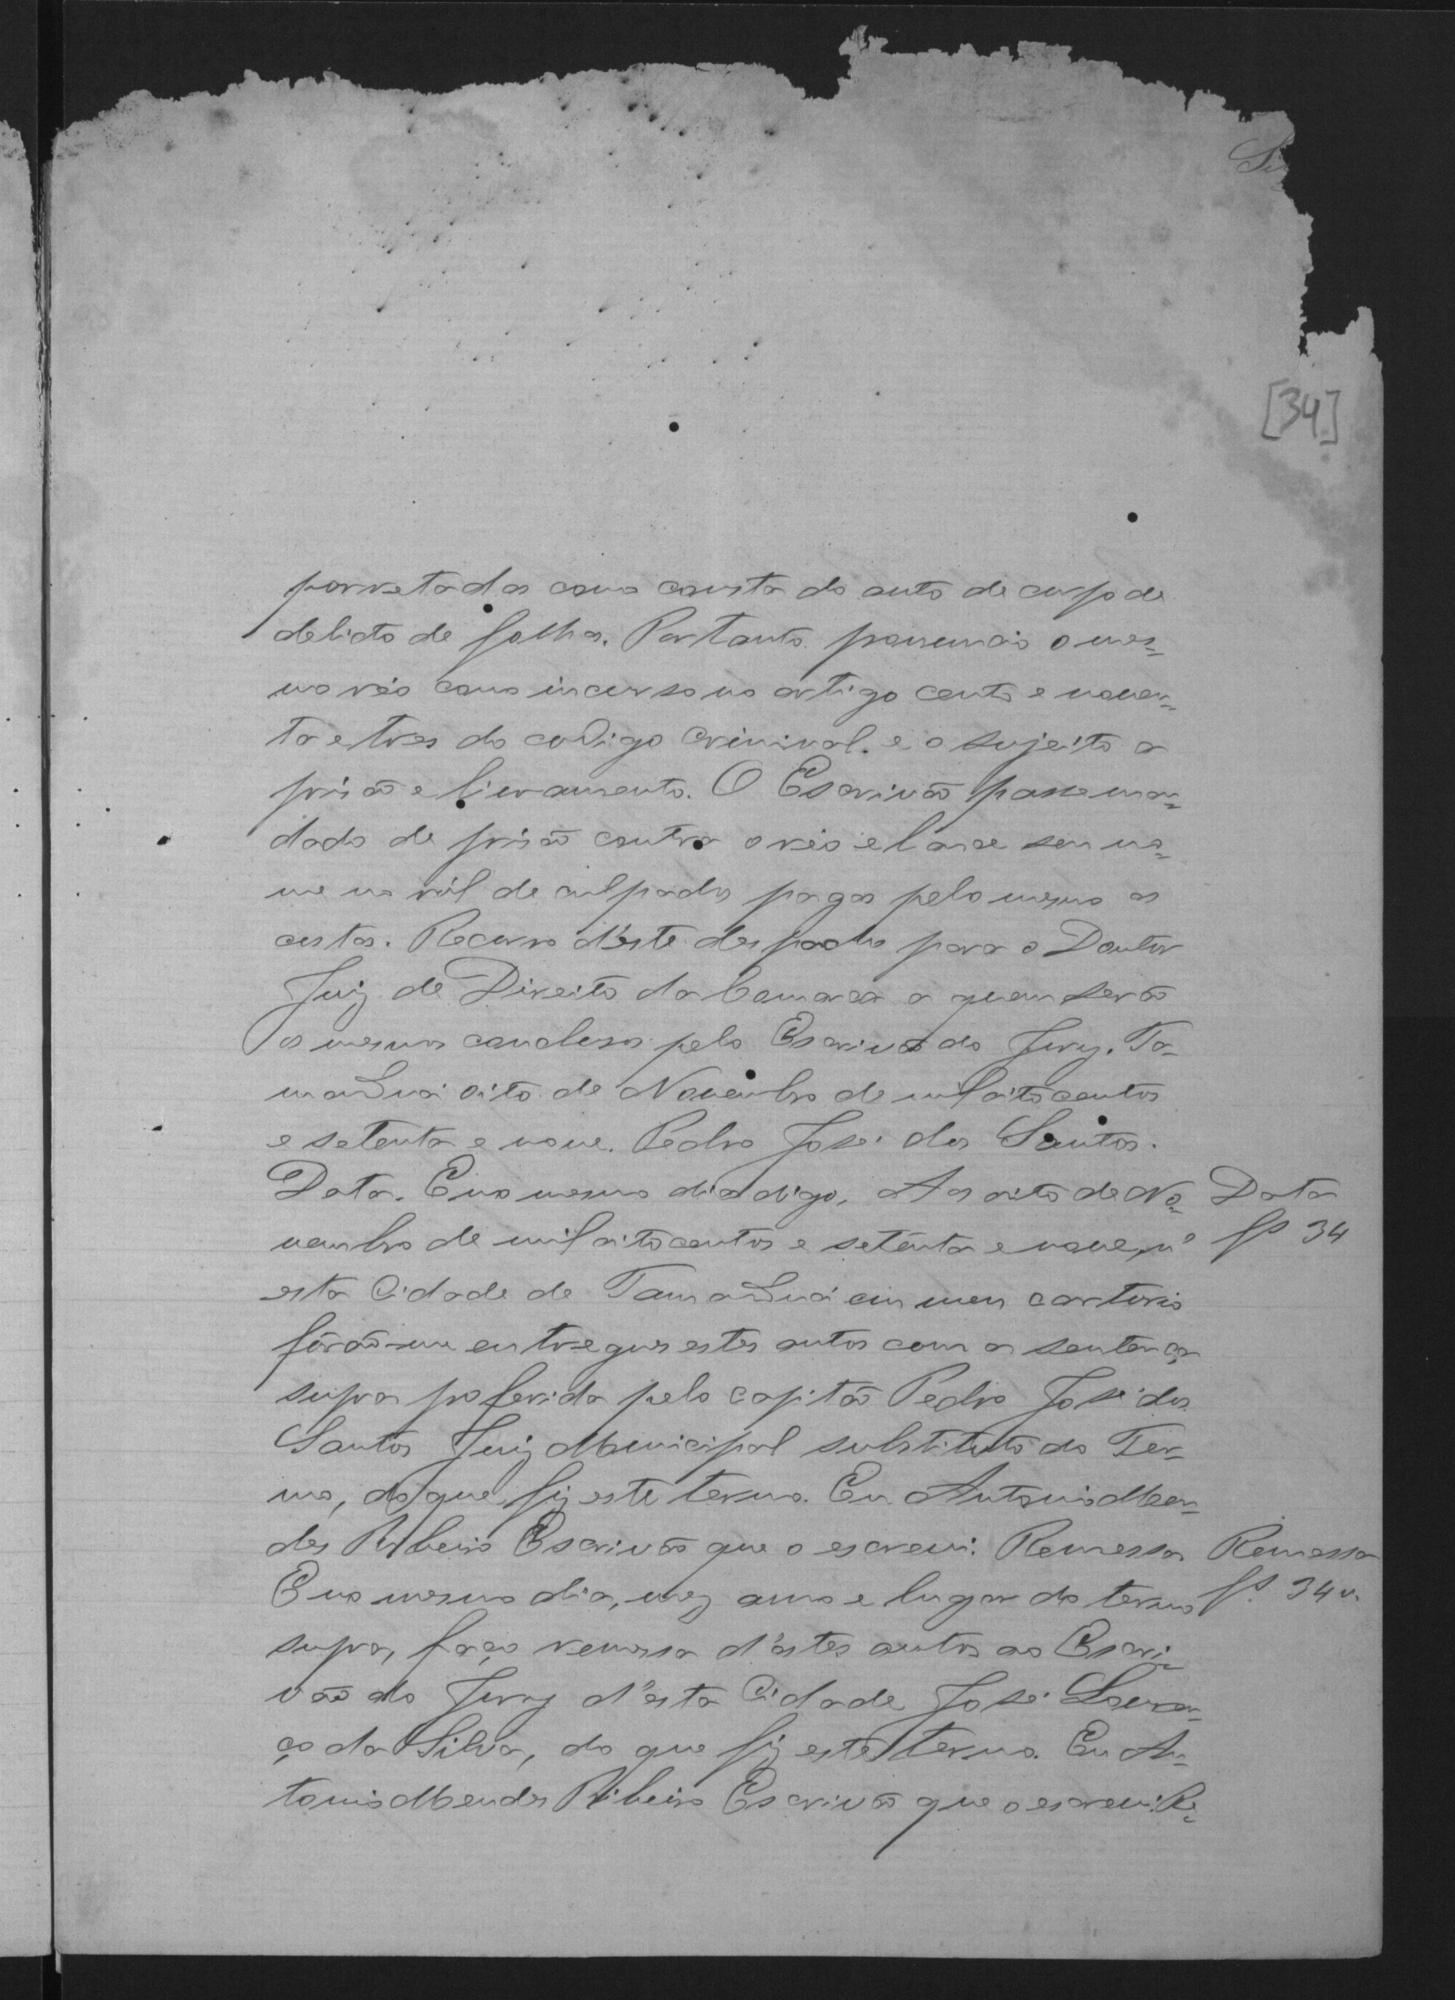 [34]
porretadas como consta do auto de corpo de
delicto de folhas. Portanto pronuncio o mes-
mo réo como incurso no artigo cento e noven-
ta e tres do codigo criminal. e o sujeito a
prisão e livramento. O Escrivão passe man-
dado de prisão contra o réo e lance seu no-
me no ról de culpados pagas pelo mesmo as
custas. Recorro d'este despacho para o Doutor
Juiz de Direito da Comarca a quem serão
os mesmos conclusos pelo Escrivão do Jury. Ta-
manduá oito de Novembro de mil oito centos
e setenta e nove. Pedro José dos Santos.
Data. E no mesmo dia digo, Aos oito de No-
vembro de mil oito centos e setenta e nove, n'
esta Cidade de Tamanduá em meu cartorio
forão-me entregues estes autos com a sentença
supra proferida pelo capitão Pedro José dos
Santos Juiz Municipal substituto do Ter-
mo, do que fiz este termo. Eu Antonio Men-
des Ribeiro Escrivão que o escrevi. Remessa
E no mesmo dia, mez anno e lugar do termo
supra, faço remessa d'estes autos ao Escri-
vão do Jury d'esta Cidade José Louren-
ço da Silva, do que fiz este termo. Eu An-
tonio Mendes Ribeiro Escrivão que o escrevi. Re-
Data
fs 34
Remessa
fs. 34 v.